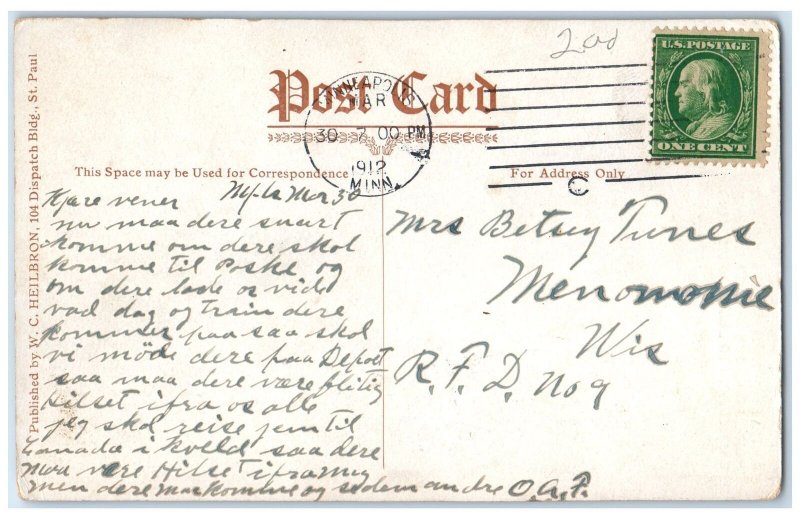 200
U.S. POSTAGE
ONE CENT
Post Card
MINNEAPOLIS
MAR
30 7 00 PM
1912
MINN.
C
This Space may be Used for Correspondence
For Address Only
Published by W. C. HEILBRON, 104 Dispatch Bldg., St. Paul
Mpls Mar 30
Kjære vener
nu maa dere snart
komme om dere skol
komme til Poske og
om dere lade os vide
vad dag og train dere
kommer paa saa skol
vi möde dere paa Depoet
saa maa dere være flitig
Hilset ifra os alle
jeg skol reise jem til
Canada i kveld saa dere
maa være Hilset ifra mig
men dere maa komme og se dem andre O.A.F.
Mrs Betsey Tunes
Menomonie
Wis
R. F. D. No 9